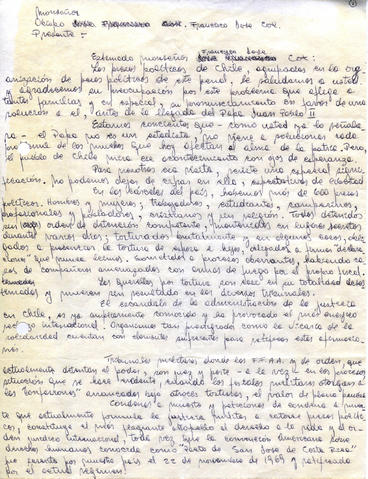 Monseñor
Obispo Francisco Jose Cox.
Presente :-
Francisco Jose
Estimado monseñor Cox :
Los presos políticos de Chile, agrupados en la org
anización de presos políticos de este penal, le saludamos a usted
y agradecemos su preocupación por este problema que aflige a
tantas familias y en especial, su pronunciamiento en favor de una
solución a él, antes de la llegada del Papa Juan Pablo II
Estamos conscientes que - como usted ya lo señala
ra - el Papa no es un estadista no viene a solucionar cada
uno de los males que hoy afectan el alma de la patria. Pero,
el pueblo de Chile mira ese acontecimiento con ojos de esperanza.
Para nosotros esa visita, reviste una especial signi-
ficación, no podemos dejar de cifrar en ella, expectativas de libertad
En las cárceles del país, habemos más de 400 presos
políticos. Hombres y mujeres, trabajadores, estudiantes, campesinos,
profesionales y pobladores, cristianos y sin religión. Todos detenidos
sin orden de detención competente, mantenidos en lugares secretos
durante varios días, torturados brutalmente y en algunos casos, obli-
gados a presenciar la tortura de esposa e hijos, obligados a firmar declara
ciones que nunca leímos, sometidos a procesos aberrantes, habiendo ca
sos de compañeros amenazados con armas de fuego por el propio fiscal.
Las querellas por tortura son en su totalidad deses
timadas y mueren sin resultado en los diversos tribunales.
El escándalo de la administración de la justicia
en Chile, es ya ampliamente conocido y ha provocado el más enérgico
rechazo internacional. Organismos tan prestigiados como la Vicaría de la
solidaridad cuentan con elementos suficientes para ratificar esta afirmación
Tribunales militares, donde las FF.AA. y de orden que
actualmente detentan el poder, son juez y parte - a la vez - en los procesos
situación que se hace evidente, cuando los fiscales militares otorgan a
las "confesiones" arrancadas bajo atroces torturas, el valor de plena prueba
Condenas a muerte y peticiones de condena a muer
te que actualmente formula la justicia militar, a catorce presos políti-
cos, constituye el más flagrante atropello al derecho a la vida y al or-
den jurídico internacional, toda vez que la convención americana sobre
derechos humanos conocida como "Pacto de San José de Costa Rica"
fue suscrita por nuestro país el 22 de noviembre de 1969 y ratificada
por el actual régimen!